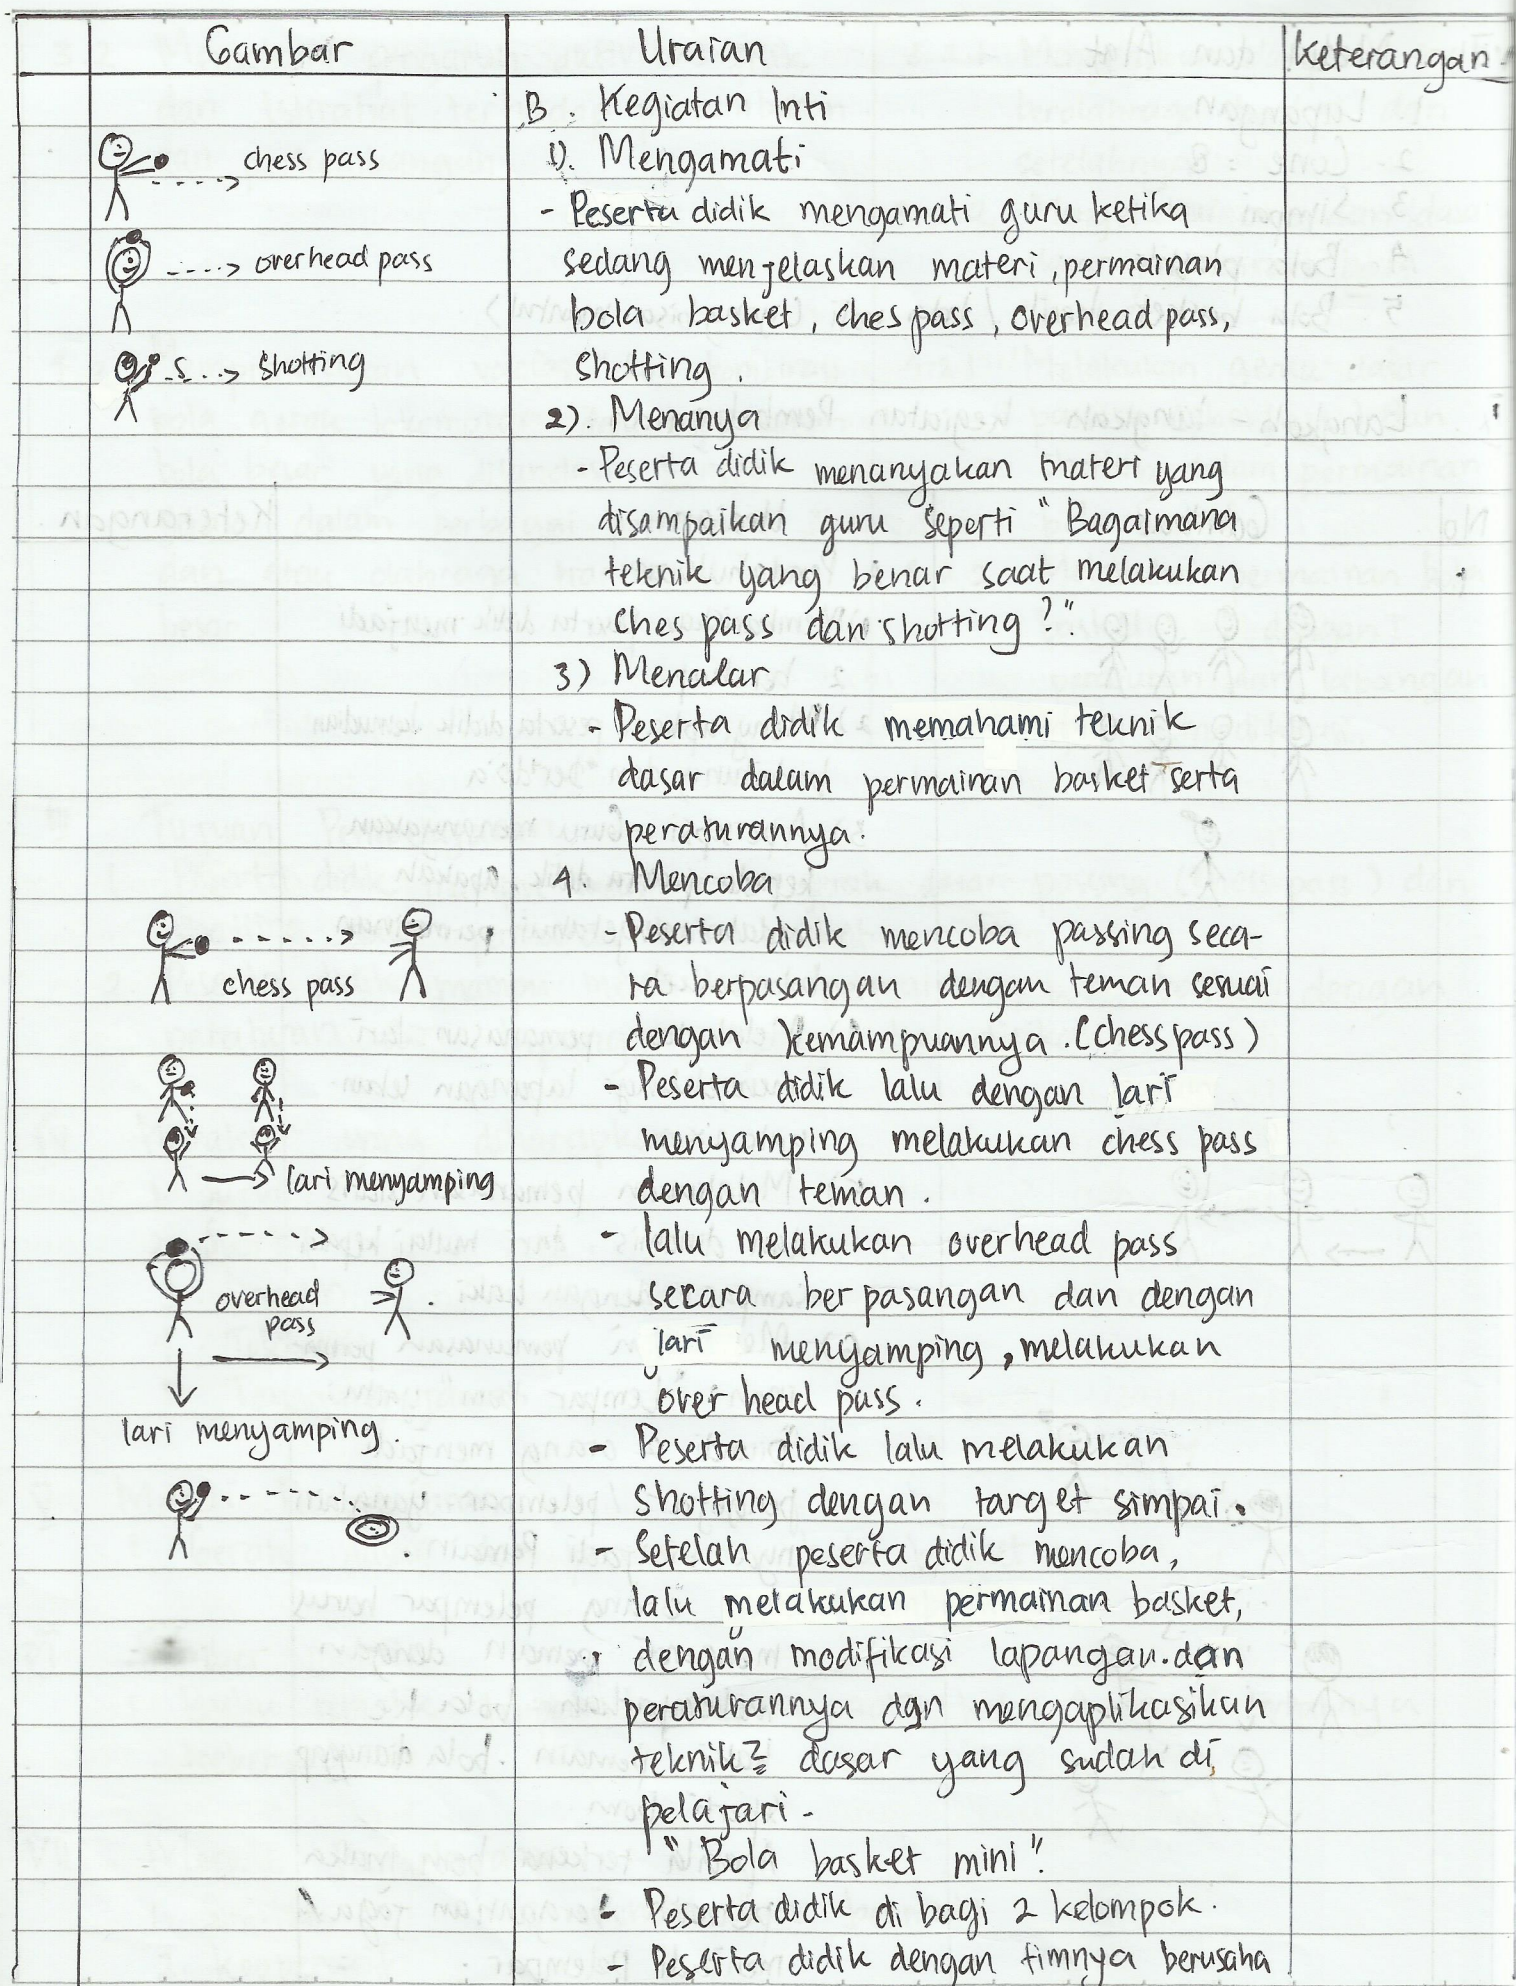 Gambar
Uraian
Keterangan
B. Kegiatan Inti
chess pass
1). Mengamati
- Peserta didik mengamati guru ketika
overhead pass
sedang menjelaskan materi, permainan
bola basket, ches pass, overhead pass,
shotting
shotting.
2). Menanya
- Peserta didik menanyakan materi yang
disampaikan guru seperti "Bagaimana
teknik yang benar saat melakukan
ches pass dan shotting?".
3) Menalar
- Peserta didik memahami teknik
dasar dalam permainan basket serta
peraturannya.
4. Mencoba
- Peserta didik mencoba passing seca-
chess pass
ra berpasangan dengan teman sesuai
dengan kemampuannya. (chess pass)
- Peserta didik lalu dengan lari
menyamping melakukan chess pass
lari menyamping
dengan teman.
- lalu melakukan overhead pass
overhead
pass
secara berpasangan dan dengan
lari menyamping, melakukan
over head pass.
lari menyamping.
- Peserta didik lalu melakukan
shotting dengan target simpai.
- Setelah peserta didik mencoba,
lalu melakukan permainan basket,
dengan modifikasi lapangan. dan
peraturannya dgn mengaplikasikan
teknik2 dasar yang sudah di
pelajari.
"Bola basket mini".
- Peserta didik di bagi 2 kelompok.
- Peserta didik dengan timnya berusaha